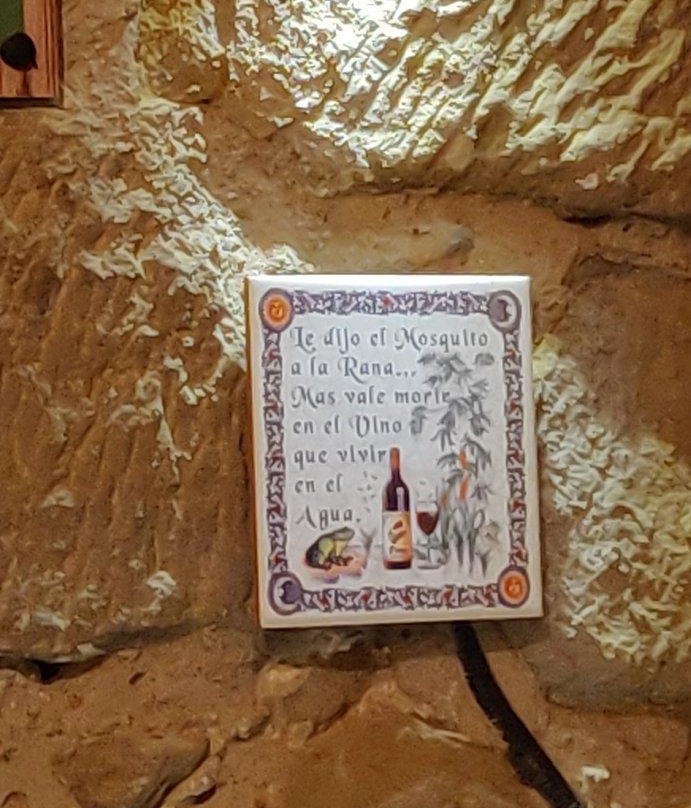 Le dijo el Mosquito
a la Rana...
Mas vale morir
en el Vino
que vivir
en el
Agua.